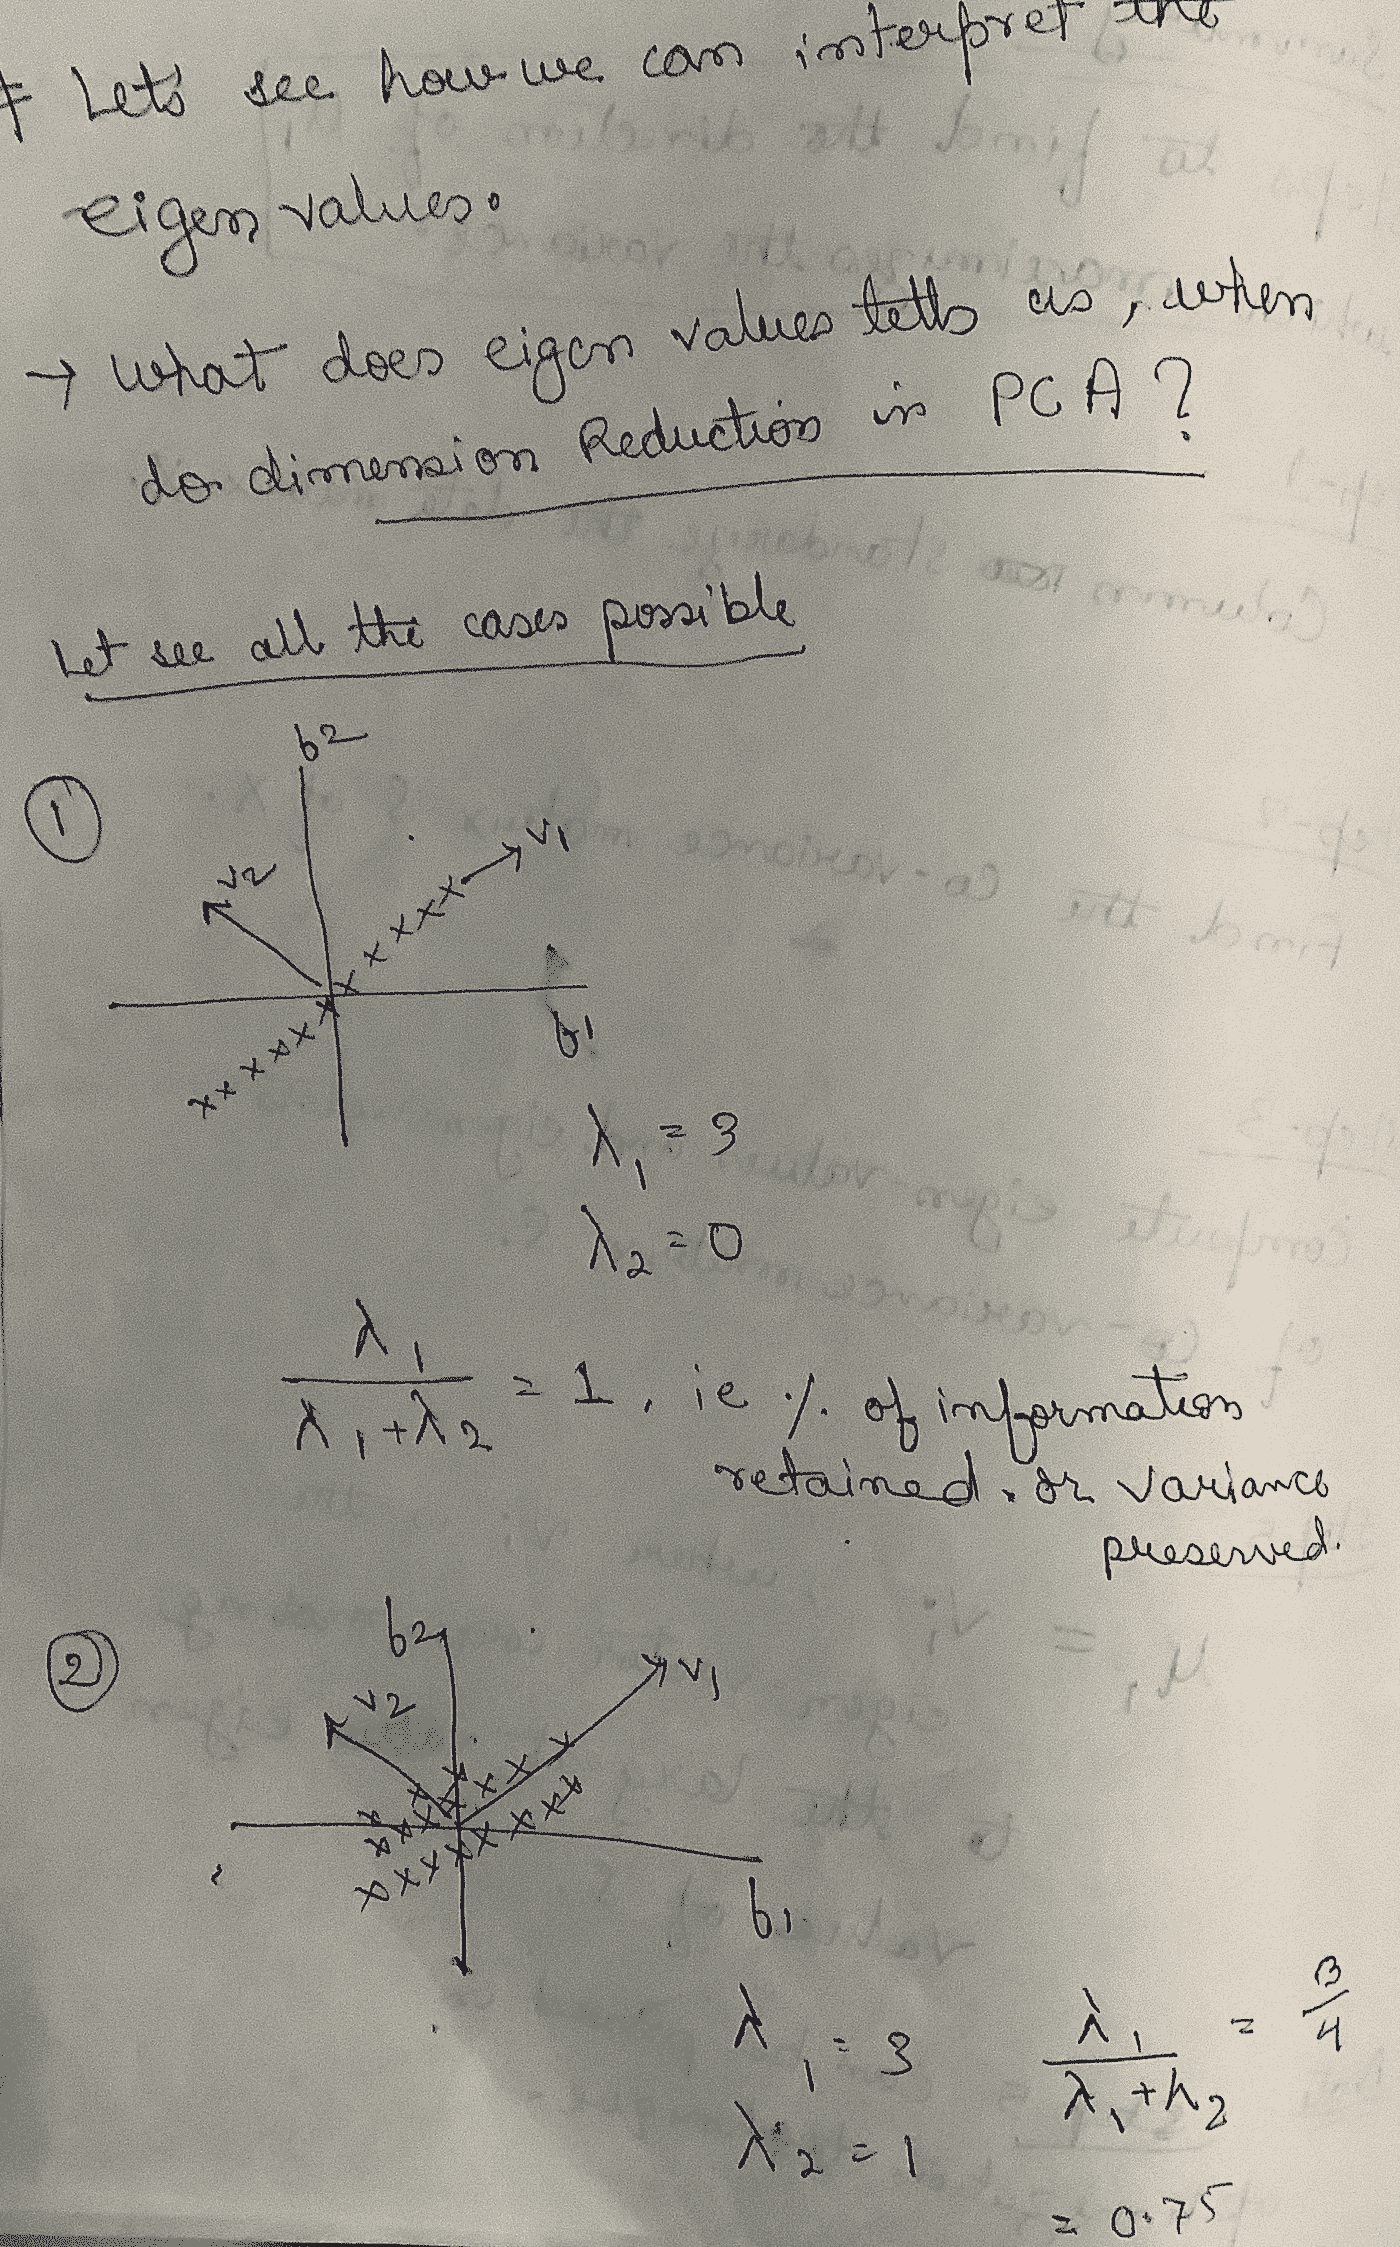 * Lets see how we can interpret the
eigen values.
→ What does eigen values tells us, when
do dimension Reduction in PCA?
Let see all the cases possible
①
b2
v2
v1
b1
λ1 = 3
λ2 = 0
λ1 / λ1+λ2 = 1, ie % of information
retained. or variance
preserved.
②
b2
v2
v1
b1
λ1 = 3
λ2 = 1
λ1 / λ1+λ2 = 3/4
= 0.75